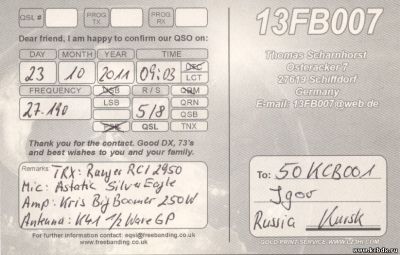 QSL # PROG TX PROG RX
Dear friend, I am happy to confirm our QSO on:
DAY MONTH YEAR TIME
23 10 2011 09:03 UTC
LCT
FREQUENCY USB R / S QRM
27.190 LSB 5/8 QRN
QSB
PSE QSL TNX
Thank you for the contact. Good DX, 73's
and best wishes to you and your family.
Remarks TRX: Ranger RCI 2950
Mic: Astatic Silver Eagle
Amp: Kris Big Boomer 250W
Antenna: K41 1/2 Wave GP
For further information contact: eqsl@freebanding.co.uk
www.freebanding.co.uk
13FB007
Thomas Scharnhorst
Osteracker 7
27619 Schiffdorf
Germany
E-mail: 13FB007@web.de
To: 50KCB001
Igor
Russia Kursk
GOLD PRINT SERVICE
www.kcbdx.ru